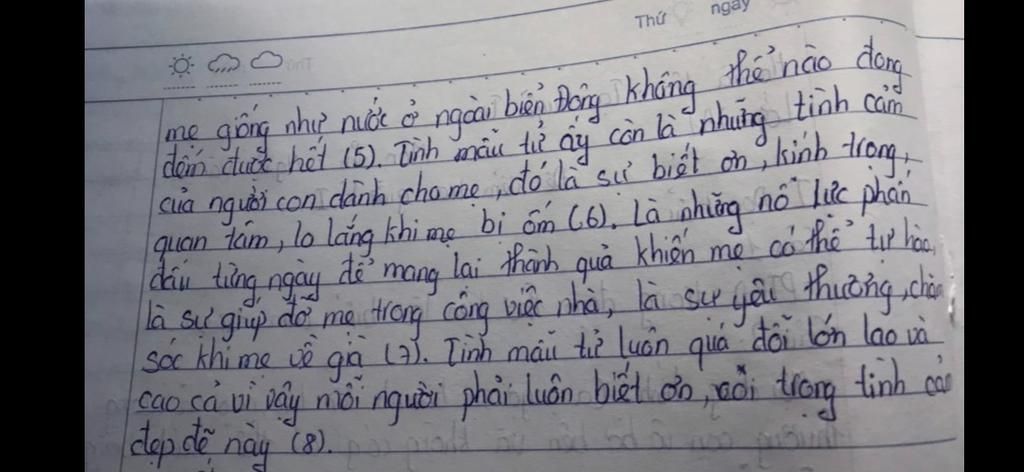 Thứ ngày
mẹ giống như nước ở ngoài biển Đông không thể nào đong
đếm được hết (5). Tình mẫu tử ấy còn là những tình cảm
của người con dành cho mẹ, đó là sự biết ơn, kính trọng,
quan tâm, lo lắng khi mẹ bị ốm (6). Là những nỗ lực phấn
đấu từng ngày để mang lại thành quả khiến mẹ có thể tự hào,
là sự giúp đỡ mẹ trong công việc nhà, là sự yêu thương, chăm
sóc khi mẹ về già (7). Tình mẫu tử luôn quá đỗi lớn lao và
cao cả vì vậy mỗi người phải luôn biết ơn, coi trọng tình cảm
đẹp đẽ này (8).